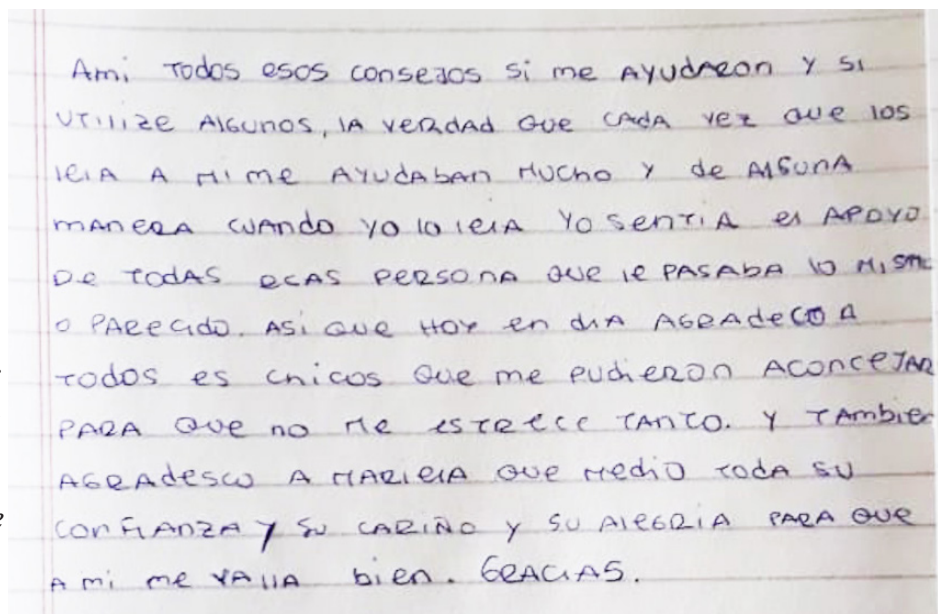 Ami todos esos consejos si me AyudAron y si
utilize Algunos, lA verdAd que cAdA vez que los
leiA A mi me AyudAban mucho y de AlgunA
mAnerA cuAndo yo lo leiA yo sentiA el Apoyo
De todAs ecAs personA que le pAsAbA lo mismo
o pArecido. Asi que Hoy en diA AgrAdeco A
todos es chicos que me pudieron AconcejAr
pArA que no me estrece tAnto. y tAmbien
AgrAdesco A MArielA que medio todA su
confiAnzA y su cAriño y su AlegriA pArA que
A mi me vAllA bien. GrAciAs.